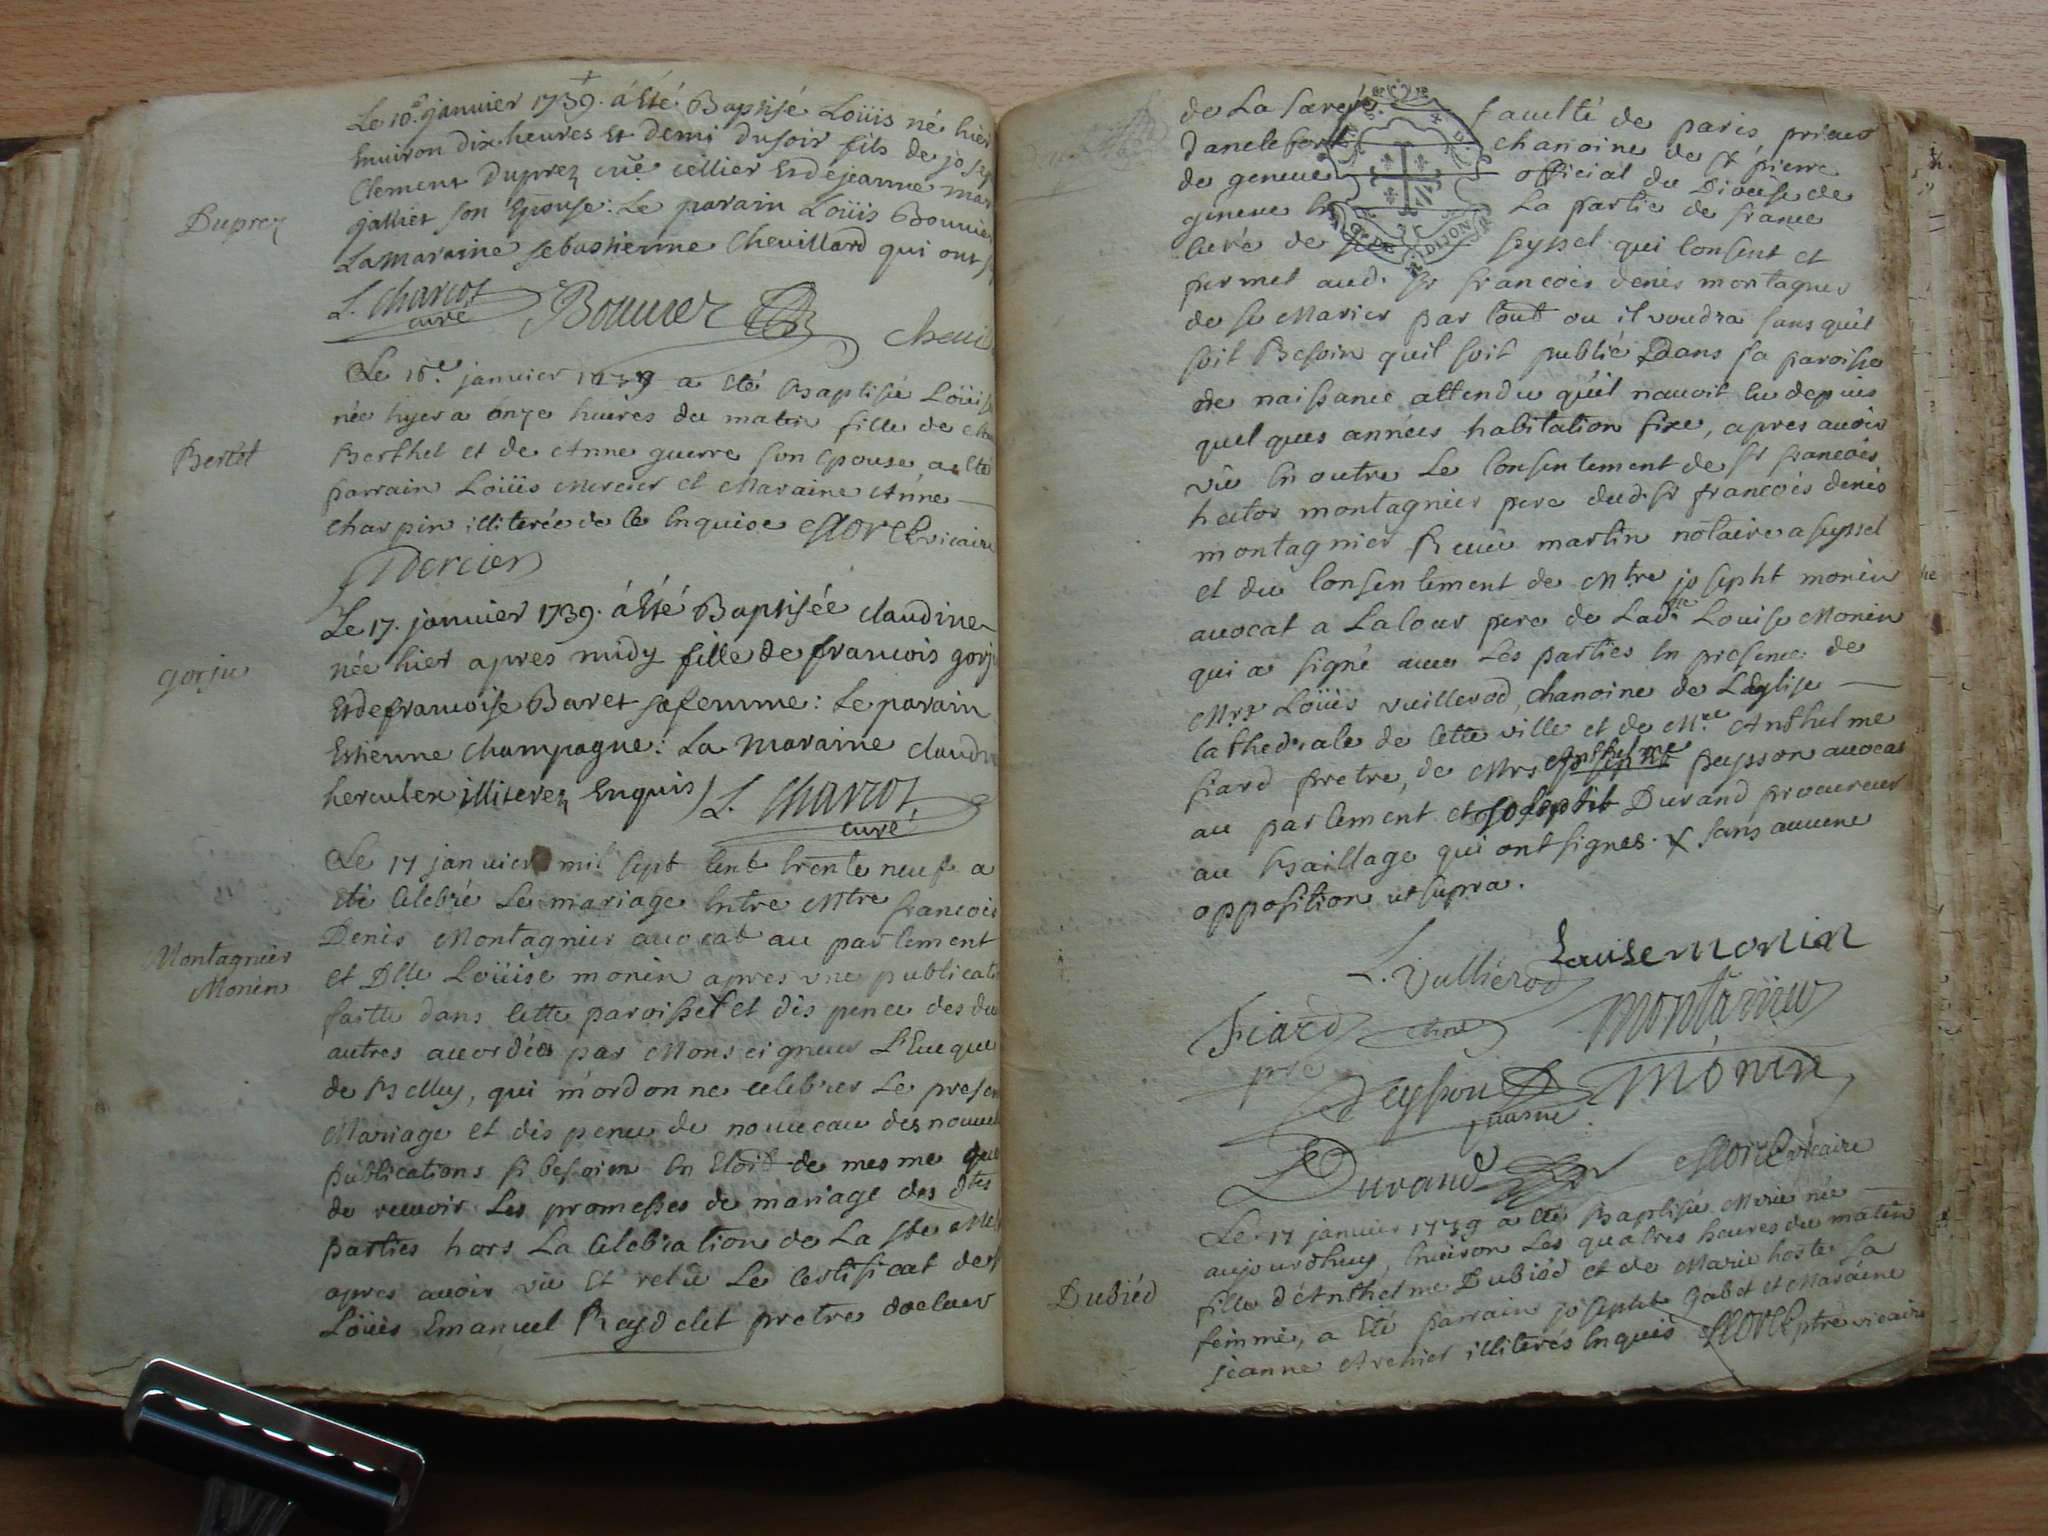 Le 10e janvier 1739. á Eté Baptisé Loüis né hier
Environ dix heures Et demi du soir fils de josep
Clement Duprez cellier Et de jeanne mar
Duprez
galliet son Epouse: Le parain Loüis Bouvier
La maraine sebastienne Chevillard qui ont
L. Charcot
curé
Bouvier
chevi
Le janvier 1739 a eté Baptisée Loüise
née hyer a onze heures du matin fille de
Bertet
Berthet et de Anne guerre son epouse, a eté
parrain Loüis Mercier et Maraine Anne
charpin illiterée de ce enquise vicaire
Mercier
Le 17. janvier 1739. á Eté Baptisée claudine
née hier apres midy fille de francois gorju
gorju
Et de francoise Baret sa femme: Le parain
Estienne Champagne: La Maraine claudin
herculex illiterez Enquis L. Charcot
curé
Le 17 janvier mil sept cent trente neuf a
eté celebré Le mariage entre Mtre francois
Denis Montagnier avocat au parlement
Montagnier
Monin
et Dlle Loüise monin apres vne publicati
faitte dans cette paroisse et dispence des du
autres accordées par Monseigneur L'Eveque
de Belley, qui m'ordonne celebrer Le presen
Mariage et dispence de nouveau des nouvel
publications si besoin en Etoit de mesme que
de recevoir Les promesses de mariage des dtes
parties hors La Celebration de La ste Me
apres avoir vü Et retenu Le Certificat de sr
Loüis Emanuel Reydelet pretre docteur
de La sacrée faculté de paris prieur
chanoine de st pierre
de geneve official du Diocese de
geneve en La partie de france
Curé de seyssel qui consent et
permet aud. sr francois denis montagnier
de se Marier par tout ou il voudra sans qu'il
soit Besoin quil soit publié dans sa paroisse
de naissance attendu qu'il n'avoit eu depuis
quelques années habitation fixe, apres avoir
vü en outre Le Consentement de sr francois
hector montagnier pere dud. sr francois denis
montagnier Receu martin notaire a seyssel
et du Consentement de Mtre josepht monin
avocat a Lacour pere de Ladte Louise Monin
qui a signé avec Les parties en presence de
Mrs Loüis vuillerod, chanoine de L'eglise
Cathedrale de Cette ville et de Mre Anthelme
fiard pretre, de Mrs Anthelme peysson avocat
au parlement et josepht Durand procureur
au Baillage qui ont signés. X sans aucune
opposition ut supra.
L. Vullierod
Louise monin
Fiard
pre
montanier
Peysson
Monin
Durand
vicaire
Le 17 janvier 1739 a eté Baptisée Marie née
aujourdhuy, environ Les quatres heures du matin
fille d'Anthelme Dubiéd et de Marie hoste sa
Dubiéd
femme, a eté parrain josepht Gabet et Maraine
jeanne Arenier illiterés enquis ptre vicaire
DIJON